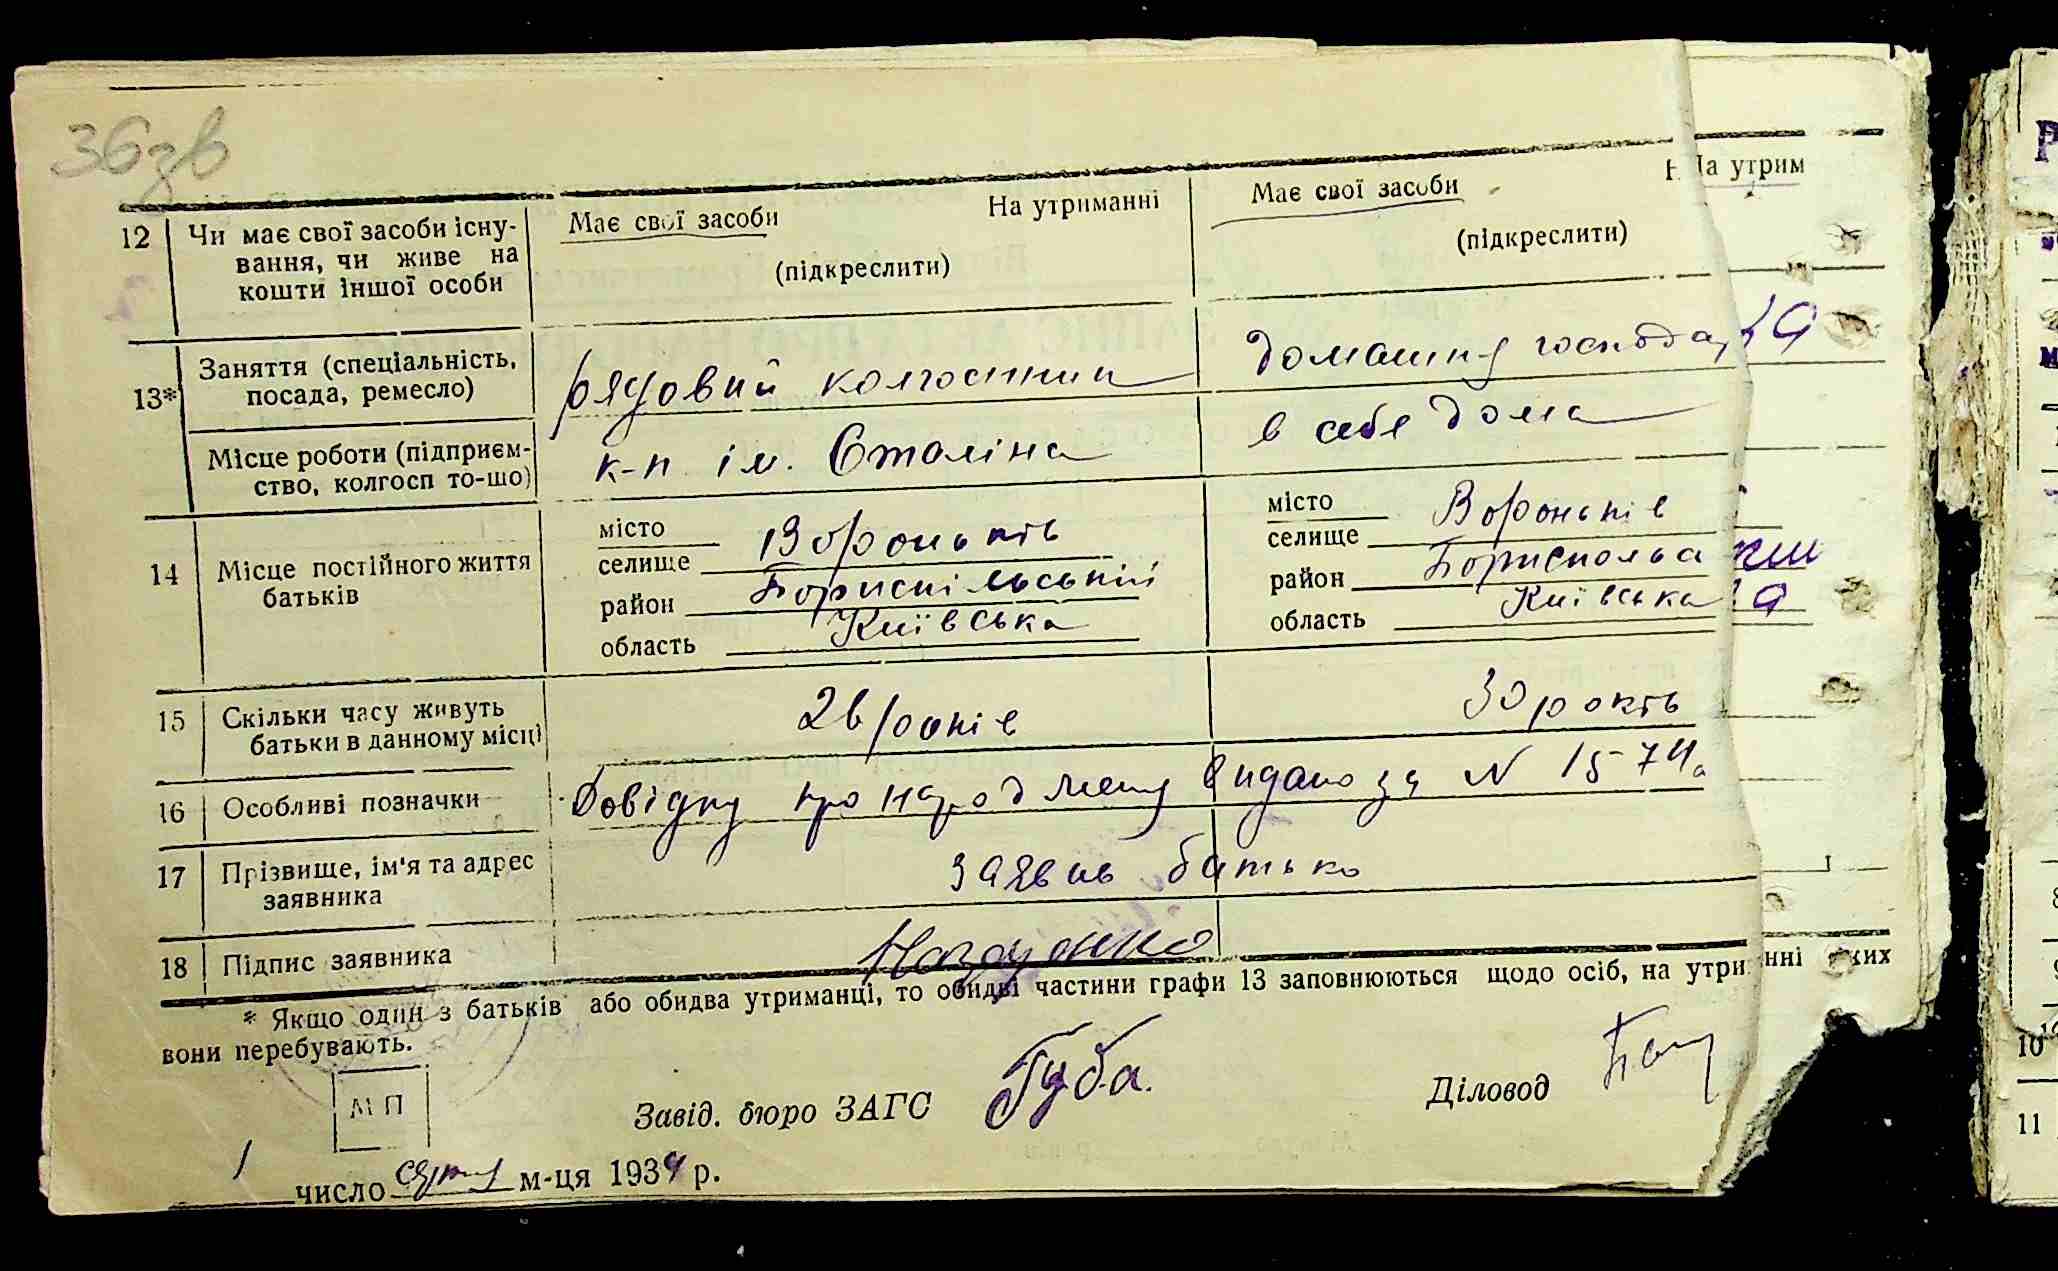 36зв
12 Чи має свої засоби існу- Має свої засоби На утриманні Має свої засоби На утрим
вання, чи живе на (підкреслити) (підкреслити)
кошти іншої особи
13* Заняття (спеціальність, рядовий колгоспник домашня господар
посада, ремесло)
Місце роботи (підприєм- к-п ім. Сталіна в себе дома
ство, колгосп то-що)
14 Місце постійного життя
батьків
місто
селище Вороньків
район Бориспільський
область Київська
місто
селище Вороньків
район Борисполь
область Київська
15 Скільки часу живуть 26 років 30 років
батьки в данному місці
16 Особливі позначки Довідку про народження видано за N 15-74
17 Прізвище, ім'я та адрес заявив батько
заявника
18 Підпис заявника
* Якщо один з батьків або обидва утриманці, то обидві частини графи 13 заповнюються щодо осіб, на утри нні яких
вони перебувають.
М П
Завід. бюро ЗАГС Губа. Діловод
1 число серпня м-ця 1934 р.
10
11